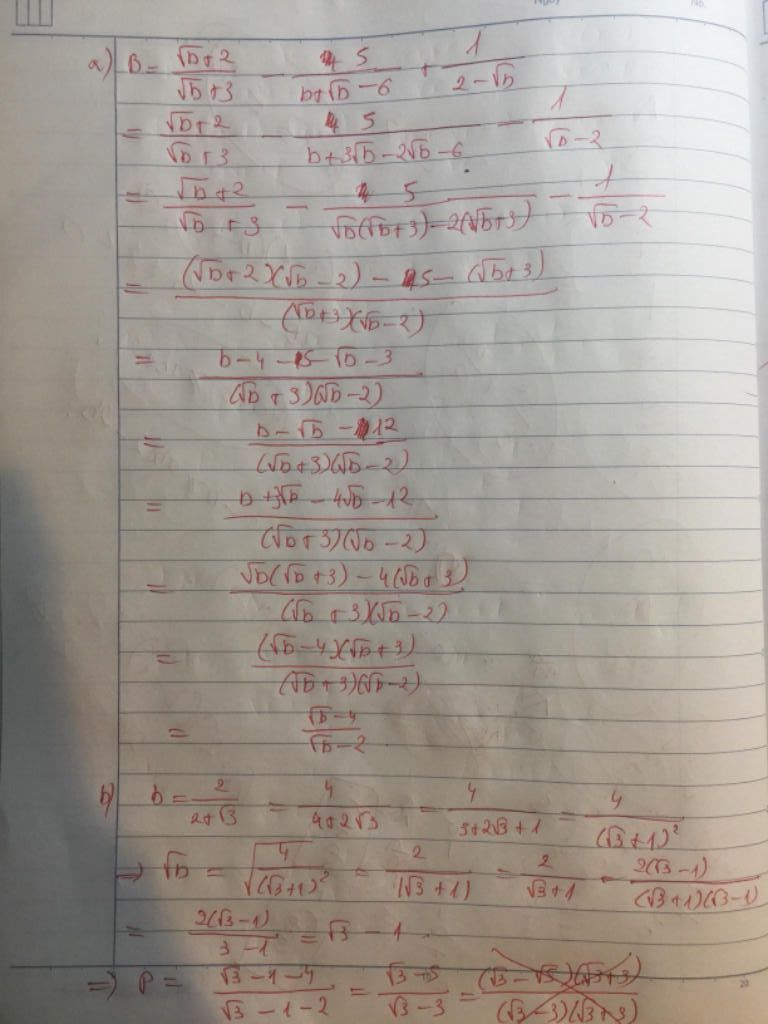 a) B = (√b+2)/(√b+3) - 5/(b+√b-6) + 1/(2-√b)
= (√b+2)/(√b+3) - 5/(b+3√b-2√b-6) - 1/(√b-2)
= (√b+2)/(√b+3) - 5/(√b(√b+3)-2(√b+3)) - 1/(√b-2)
= ((√b+2)(√b-2) - 5 - (√b+3))/((√b+3)(√b-2))
= (b-4-5-√b-3)/((√b+3)(√b-2))
= (b-√b-12)/((√b+3)(√b-2))
= (b+3√b-4√b-12)/((√b+3)(√b-2))
= (√b(√b+3)-4(√b+3))/((√b+3)(√b-2))
= ((√b-4)(√b+3))/((√b+3)(√b-2))
= (√b-4)/(√b-2)
b) b = 2/(2+√3) = 4/(4+2√3) = 4/(3+2√3+1) = 4/(√3+1)²
=> √b = √(4/(√3+1)²) = 2/|√3+1| = 2/(√3+1) = 2(√3-1)/((√3+1)(√3-1))
= 2(√3-1)/(3-1) = √3-1.
=> P = (√3-1-4)/(√3-1-2) = (√3-5)/(√3-3) = ((√3-√5)(√3+3))/((√3-3)(√3+3))